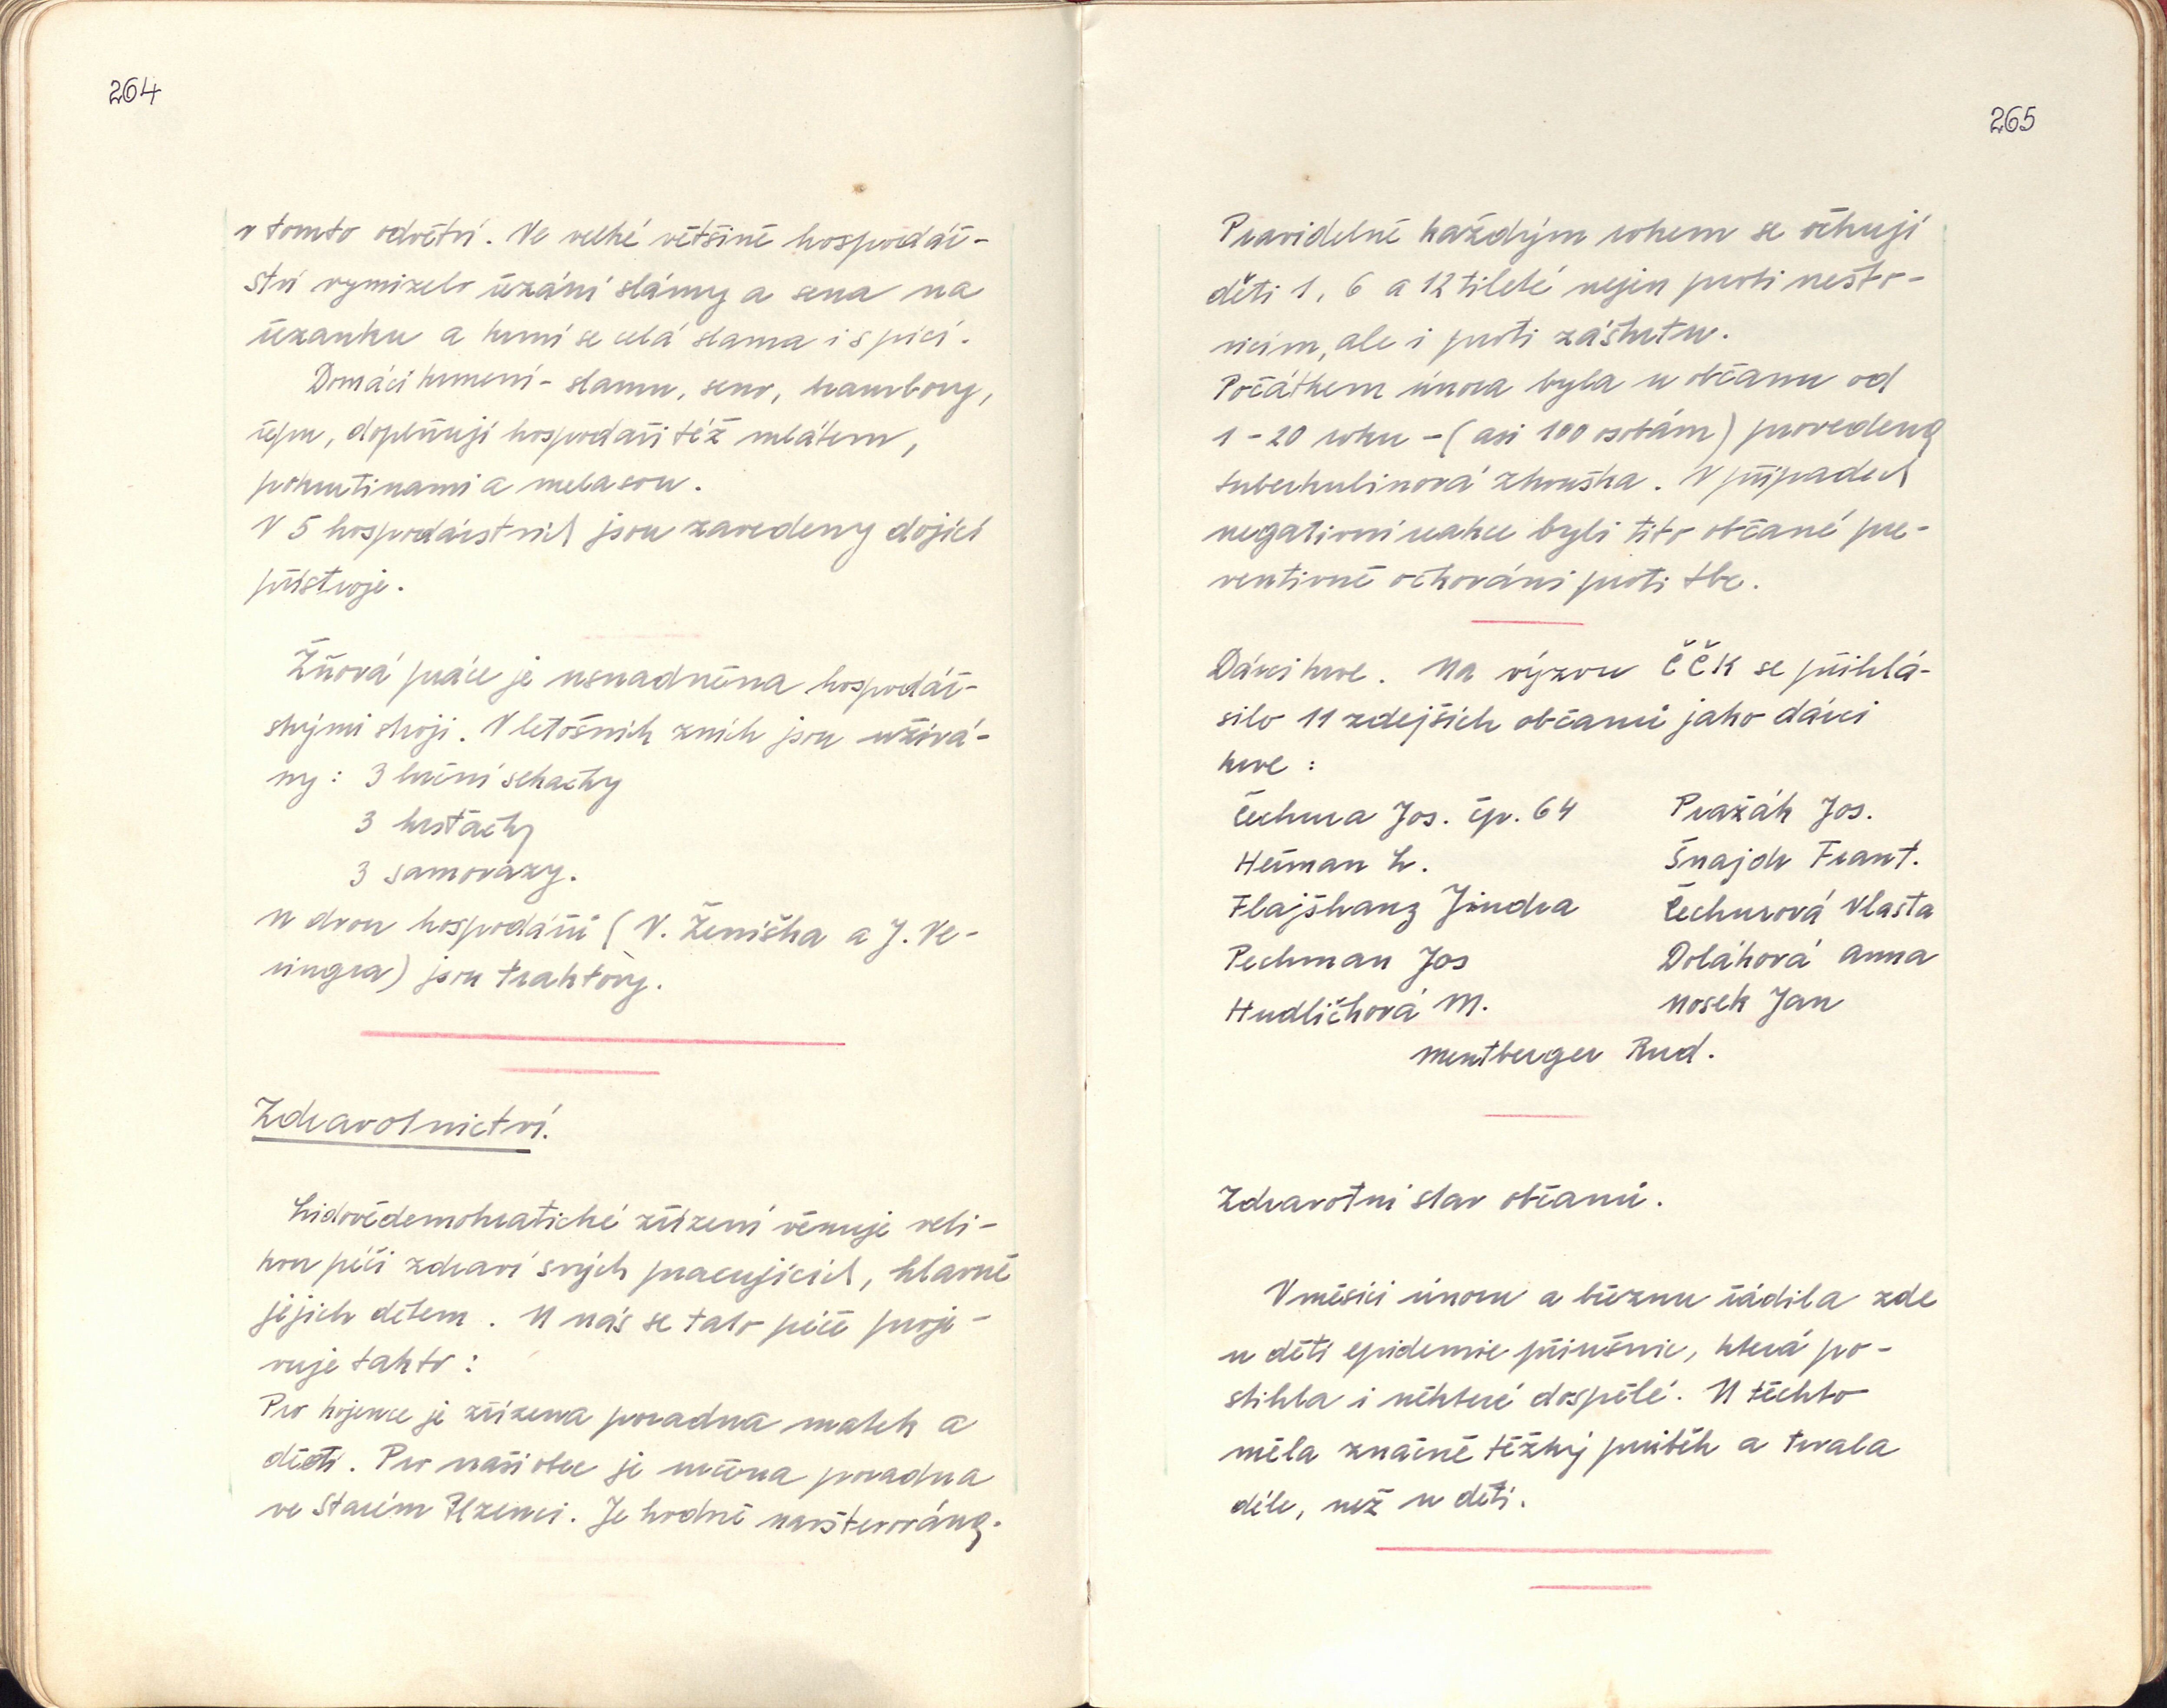 264
v tomto odvětví. Ve velké většině hospodář-
ství vymizelo řezání slámy a sena na
řezanku a krmí se celá slama i s picí.
Domácí krmení - slamu, seno, brambory,
řepu, doplňují hospodáři též mlátem,
pokrutinami a melasou.
V 5 hospodářstvích jsou zavedeny dojící
přístroje.
Žňová práce je usnadněna hospodář-
skými stroji. V letošních žních jsou užívá-
ny: 3 luční sekačky
3 hrsťačky
3 samovazy.
U dvou hospodářů (V. Ženíška a J. Ve-
ringra) jsou traktory.
Zdravotnictví.
Lidovědemokratické zřízení věnuje veli-
kou péči zdraví svých pracujících, hlavně
jejich dětem. U nás se tato péče proje-
vuje takto:
Pro kojence je zřízena poradna matek a
dětí. Pro naši obec je určena poradna
ve Starém Plzenci. Je hodně navštěvována.
265
Pravidelně každým rokem se očkují
děti 1, 6 a 12tileté nejen proti nešto-
vicím, ale i proti záškrtu.
Počátkem února byla u občanu od
1 - 20 roku - (asi 100 osobám) provedena
tuberkulinová zkouška. V případech
negativní reakce byli tito občané pre-
ventivně očkováni proti tbc.
Dárci krve. Na výzvu ČČK se přihlá-
silo 11 zdejších občanů jako dárci
krve:
Čechura Jos. čp. 64 Pražák Jos.
Heřman L. Šnajdr Frant.
Flajšhanz Jindra Čechurová Vlasta
Pechman Jos Doláková Anna
Hudličková M. Nosek Jan
Mentberger Rud.
Zdravotní stav občanů.
V měsíci únoru a březnu řádila zde
u dětí epidemie příušnic, která po-
stihla i některé dospělé. U těchto
měla značně těžký průběh a trvala
déle, než u dětí.